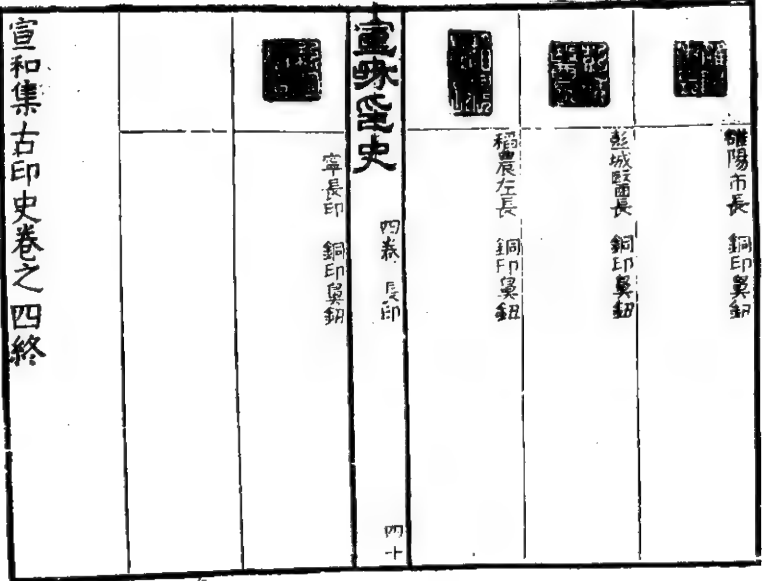 雒陽市長 銅印鼻鈕
彭城醫長 銅印鼻鈕
稻農左長 銅印鼻鈕
宣和印史 四卷 長印 四十
寧長印 銅印鼻鈕
宣和集古印史卷之四終